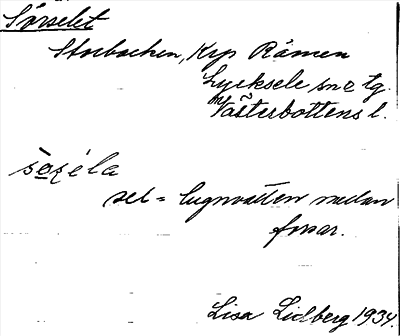 Sörselet
Storbacken, Krp Rämen
Lycksele sn o tg.
Västerbottens l.
sel = lugnvatten mellan
forsar.
Lisa Lidberg 1934.